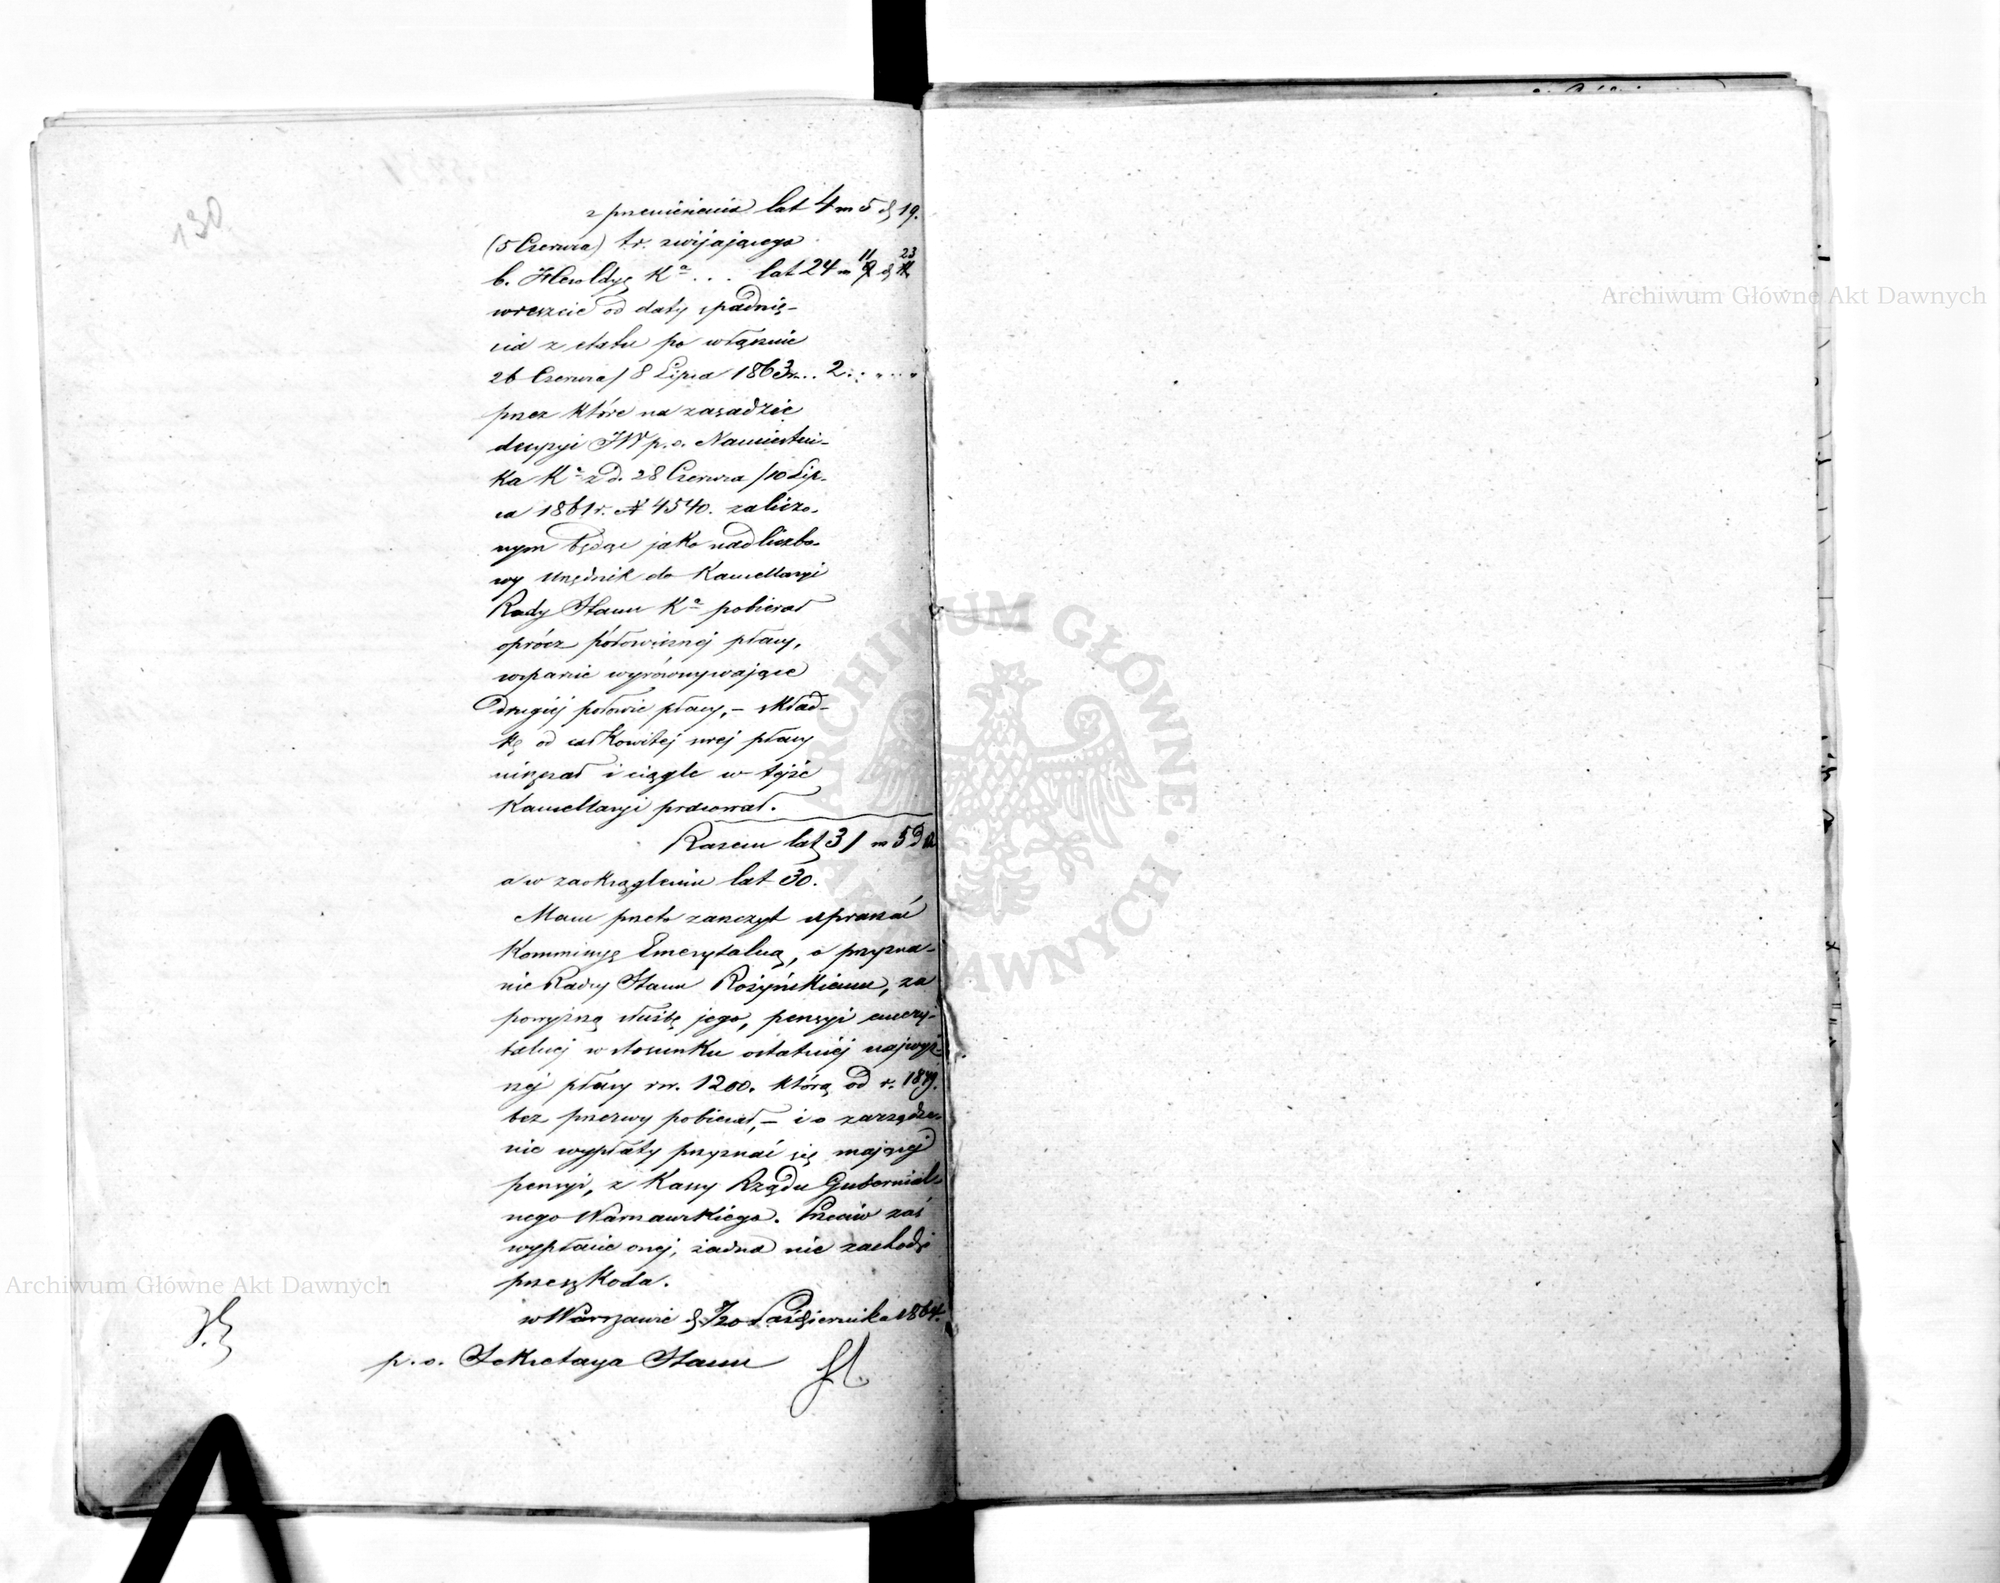 130
z przeniesienia lat 4 m 5 d 19.
(5 Czerwca) t.r. zwijającego
b. Heroldyę Ka ... lat 24 m 11 d 23
wreszcie od daty spadnię-
cia z etatu po włącznie
26 Czerwca/8 Lipca 1863 r... 2 : : " .. "
przez które na zasadzie
decyzyi JW p.o. Namiestni-
ka Ka z d. 28 Czerwca/10 Lip-
ca 1861 r. N 4540. zaliczo-
nym będąc jako nadliczbo-
wy Urzędnik do Kancellaryi
Rady Stanu Ka pobierał
oprócz połowicznej płacy,
wsparcie wyrównywające
drugiej połowie płacy, – skład-
kę od całkowitej swej płacy
uiszczał i ciągle w tejże
Kancellaryi pracował.
Razem lat 31 m 5 D
a w zaokrągleniu lat 30.
Mam przeto zaszczyt upraszać
Kommissyę Emerytalną, o przyzna-
nie Radcy Stanu Rożyńskiemu, za
powyższą służbę jego, pensyi emery-
talnej w stosunku ostatniej najwyż-
szej płacy rsr. 1200. którą od r. 1849.
bez przerwy pobierał, – i o zarządze-
nie wypłaty przyznać się mającej
pensyi, z Kassy Rządu Gubernial-
nego Warszawskiego. Przeciw zaś
wypłacie onej, żadna nie zachodzi
przeszkoda.
w Warszawie d. 8/20 Października 1864.
p. o. Sekretarza Stanu
Archiwum Główne Akt Dawnych
Archiwum Główne Akt Dawnych
ARCHIWUM GŁÓWNE AKT DAWNYCH